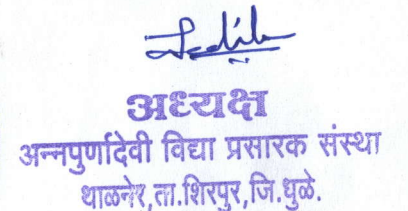 अध्यक्ष
अन्नपुर्णादेवी विद्या प्रसारक संस्था
थाळनेर,ता.शिरपुर,जि.धुळे.